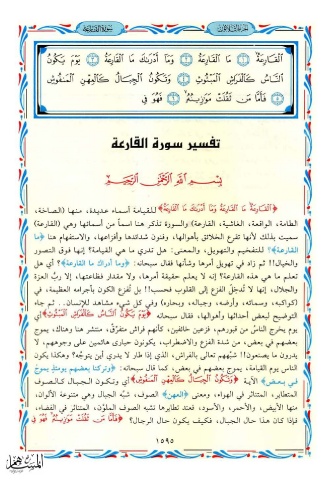 الجزء الثلاثون
سورة القارعة
ٱلۡقَارِعَةُ ١ مَا ٱلۡقَارِعَةُ ٢ وَمَآ أَدۡرَىٰكَ مَا ٱلۡقَارِعَةُ ٣ يَوۡمَ يَكُونُ
ٱلنَّاسُ كَٱلۡفَرَاشِ ٱلۡمَبۡثُوثِ ٤ وَتَكُونُ ٱلۡجِبَالُ كَٱلۡعِهۡنِ ٱلۡمَنفُوشِ
٥ فَأَمَّا مَن ثَقُلَتۡ مَوَٰزِينُهُۥ ٦ فَهُوَ فِي
تفسير سورة القارعة
بسم الله الرحمن الرحيم
﴿القارعة ما القارعة وما أدراك ما القارعة﴾ للقيامة أسماء عديدة، منها (الصاخة،
الطامة، الواقعة، الغاشية، القارعة) والسورة تذكر هنا اسماً من أسمائها وهي (القارعة)
سميت بذلك لأنها تقرع الخلائق بأهوالها، وفنون شدائدها وأفزاعها، والاستفهام هنا ﴿ما
القارعة﴾؟ للتفخيم والتهويل، والمعنى: هل تدري ما هي القيامة؟ إنها فوق التصور
والخيال!! ثم زاد في تهويل أمرها وشأنها فقال سبحانه: ﴿وما أدراك ما القارعة﴾؟ أي هل
تعلم ما هي هذه القارعة؟ إنه لا يعلم حقيقة أمرها، ولا مقدار فظاعتها، إلا ربُّ العزة
والجلال، إنها لا تُدخِل الفزع إلى القلوب فحسب!! بل تُفزع الكون بأجرامه العظيمة، في
(كواكبه، وسمائه، وأرضه، وجباله، وبحاره) وفي كل شيء مشاهد للإنسان.. ثم جاء
التوضيح لبعض أحداثها وأهوالها، فقال سبحانه ﴿يوم يكون الناس كالفراش المبثوث﴾ أي
يوم يخرج الناسُ من قبورهم، فزعين خائفين، كأنهم فراش متفرِّق، منتشر هنا وهناك، يموج
بعضهم في بعض، من شدة الفزع والاضطراب، يكونون حيارى هائمين على وجوههم، لا
يدرون ما يصنعون!! شبَّههم تعالى بالفراش، الذي إذا طار لا يدري أين يتوجَّه؟ وهكذا يكون
الناس يوم القيامة، يموج بعضهم في بعض، كما قال سبحانه: ﴿وتركنا بعضهم يومئذٍ يموج
في بعض﴾ الآية ﴿وتكون الجبال كالعهن المنفوش﴾ أي وتكون الجبال كالصوف
المتطاير، المتناثر في الهواء، ومعنى ﴿العهن﴾ الصوف، شبَّه الجبال وهي متنوعة الألوان،
منها الأبيض، والأحمر، والأسود، فعند تطايرها تشبه الصوف الملوَّن، المتناثر في الفضاء،
فإذا كان هذا حال الجبال، فكيف يكون حال الرجال؟ ﴿فأما من ثقلت موازينه فهو في
١٥٩٥